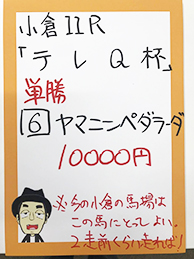 小倉11R
「テレQ杯」
単勝
6 ヤマニンペダラーダ
10000円
※今の小倉の馬場は
この馬にとってよい。
2走前くらい走れば!